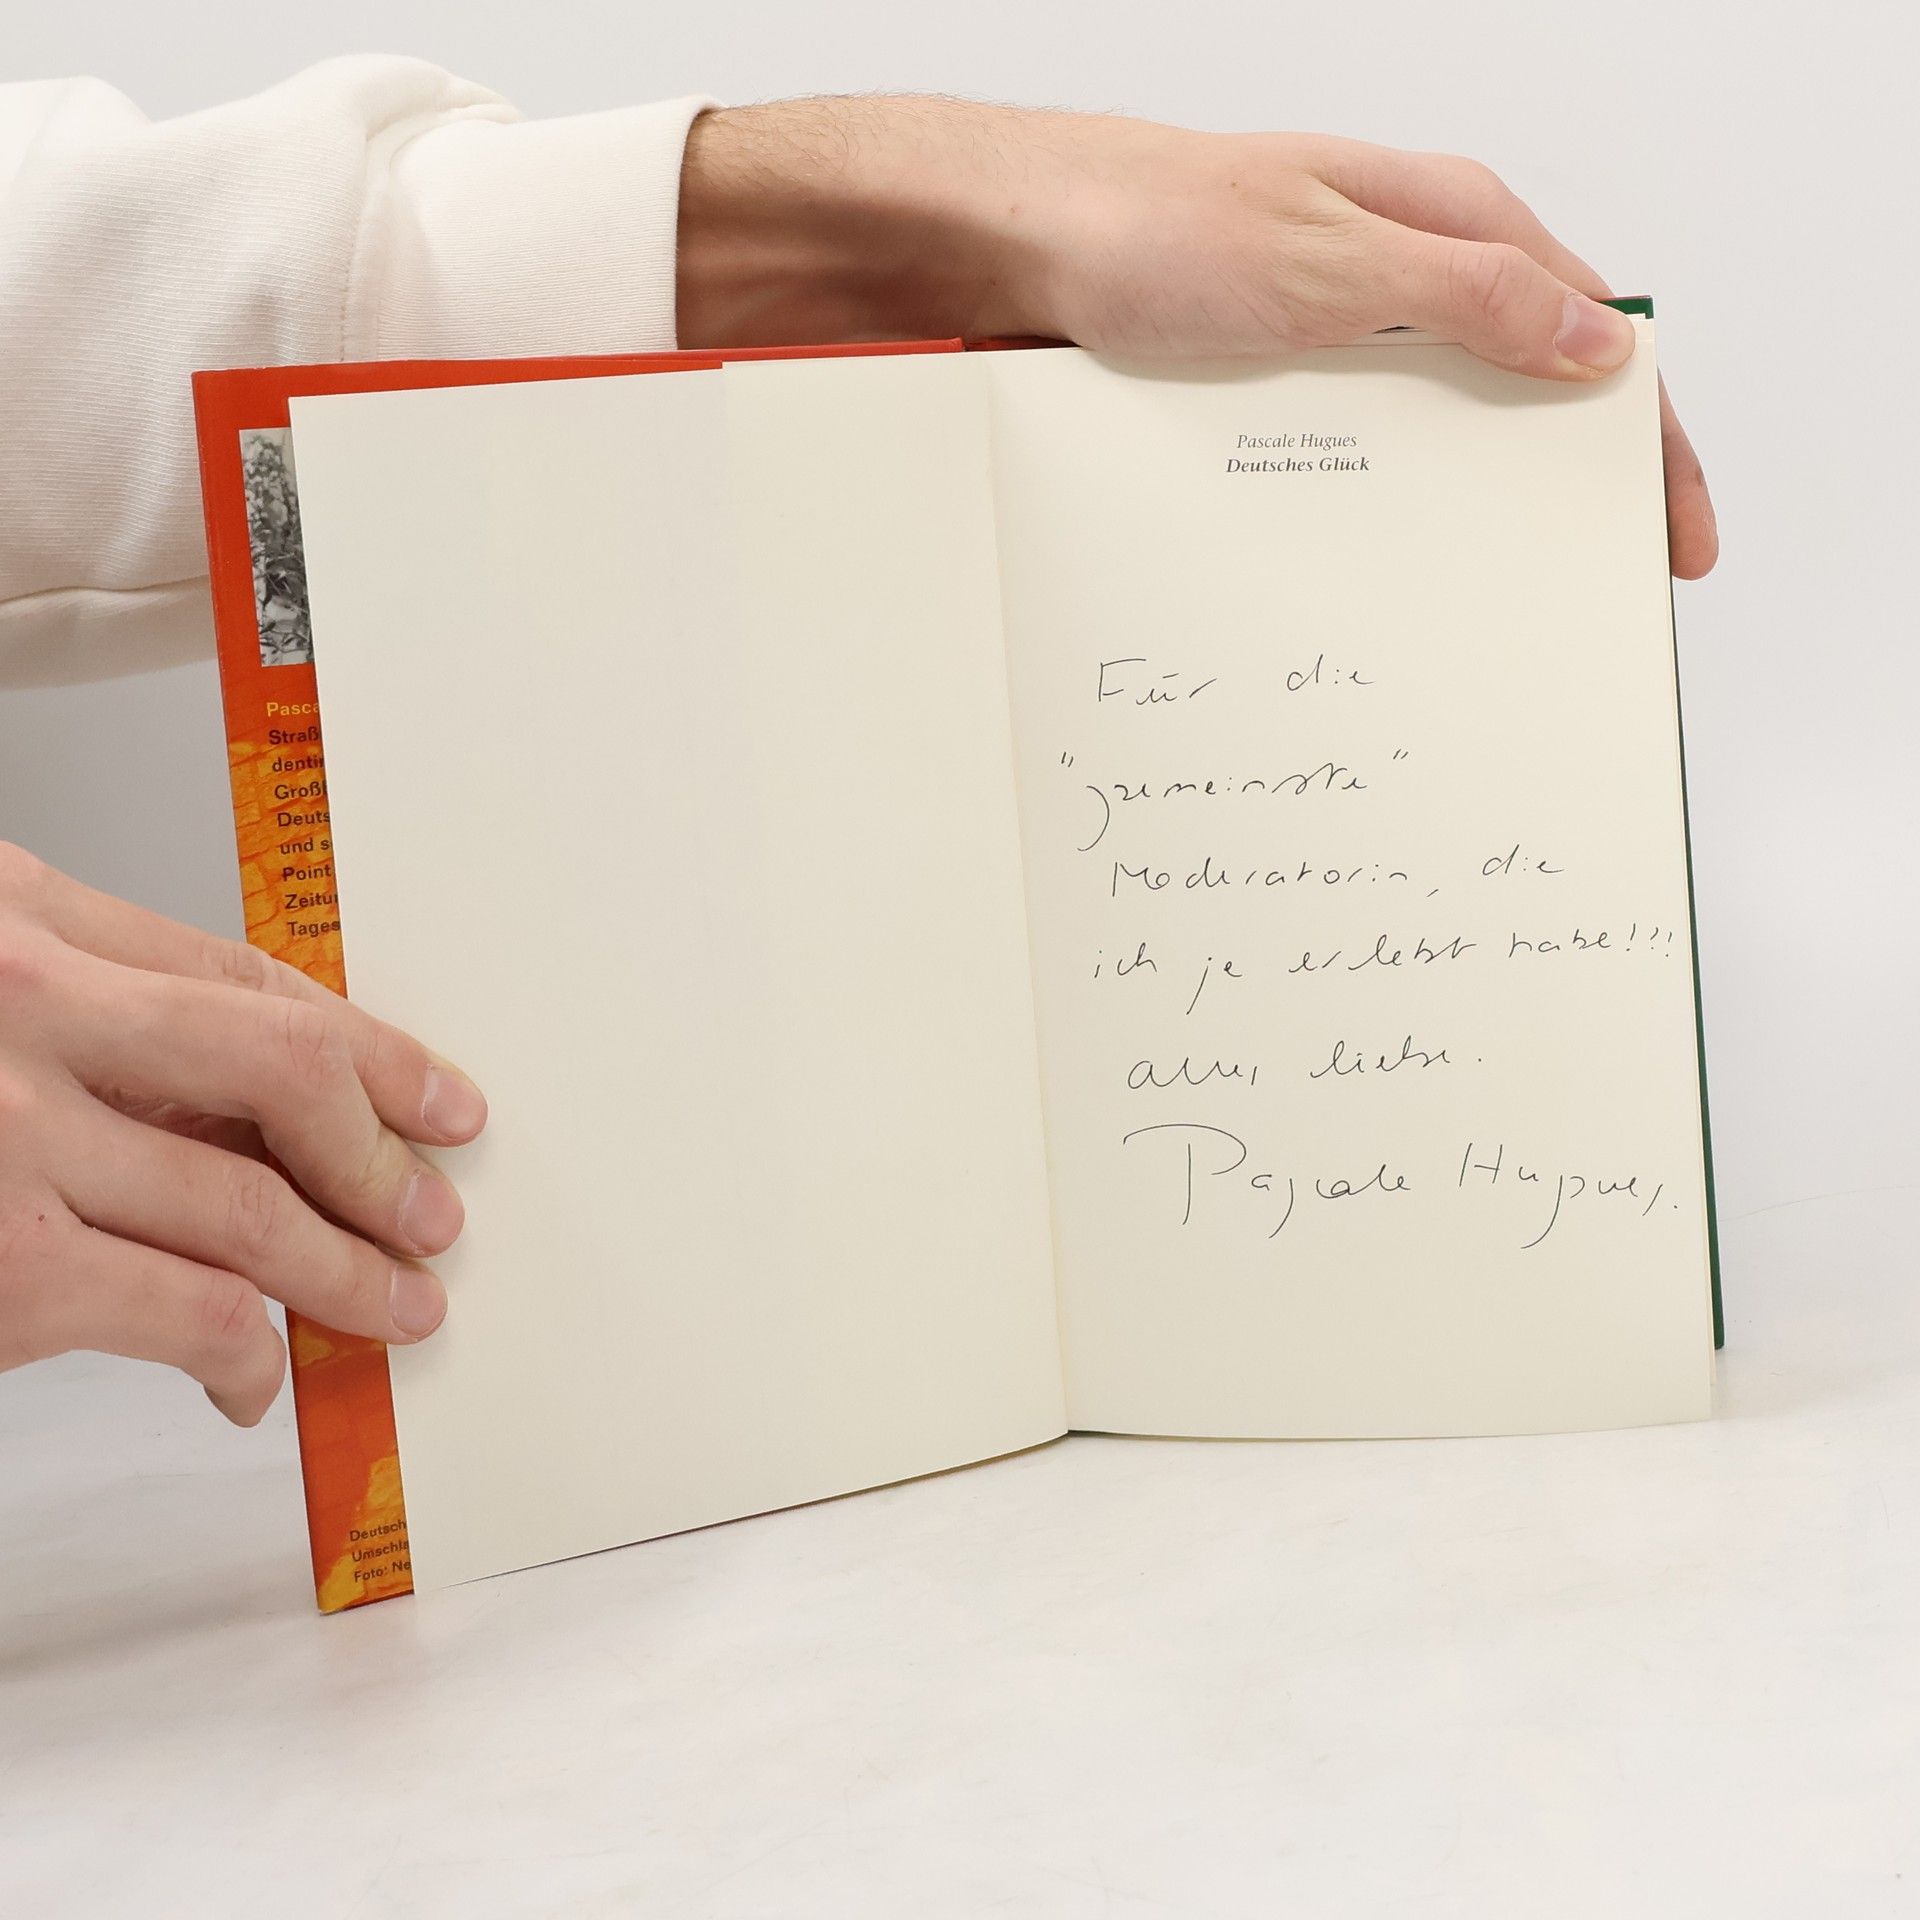 Pasca
Straß
dentin
Großb
Deuts
und s
Point
Zeitu
Tages
Deutsch
Umschla
Foto: Ne
Pascale Hugues
Deutsches Glück
Für die
"gemeinste"
Moderatorin, die
ich je erlebt habe!!!
alles liebe.
Pascale Hugues.